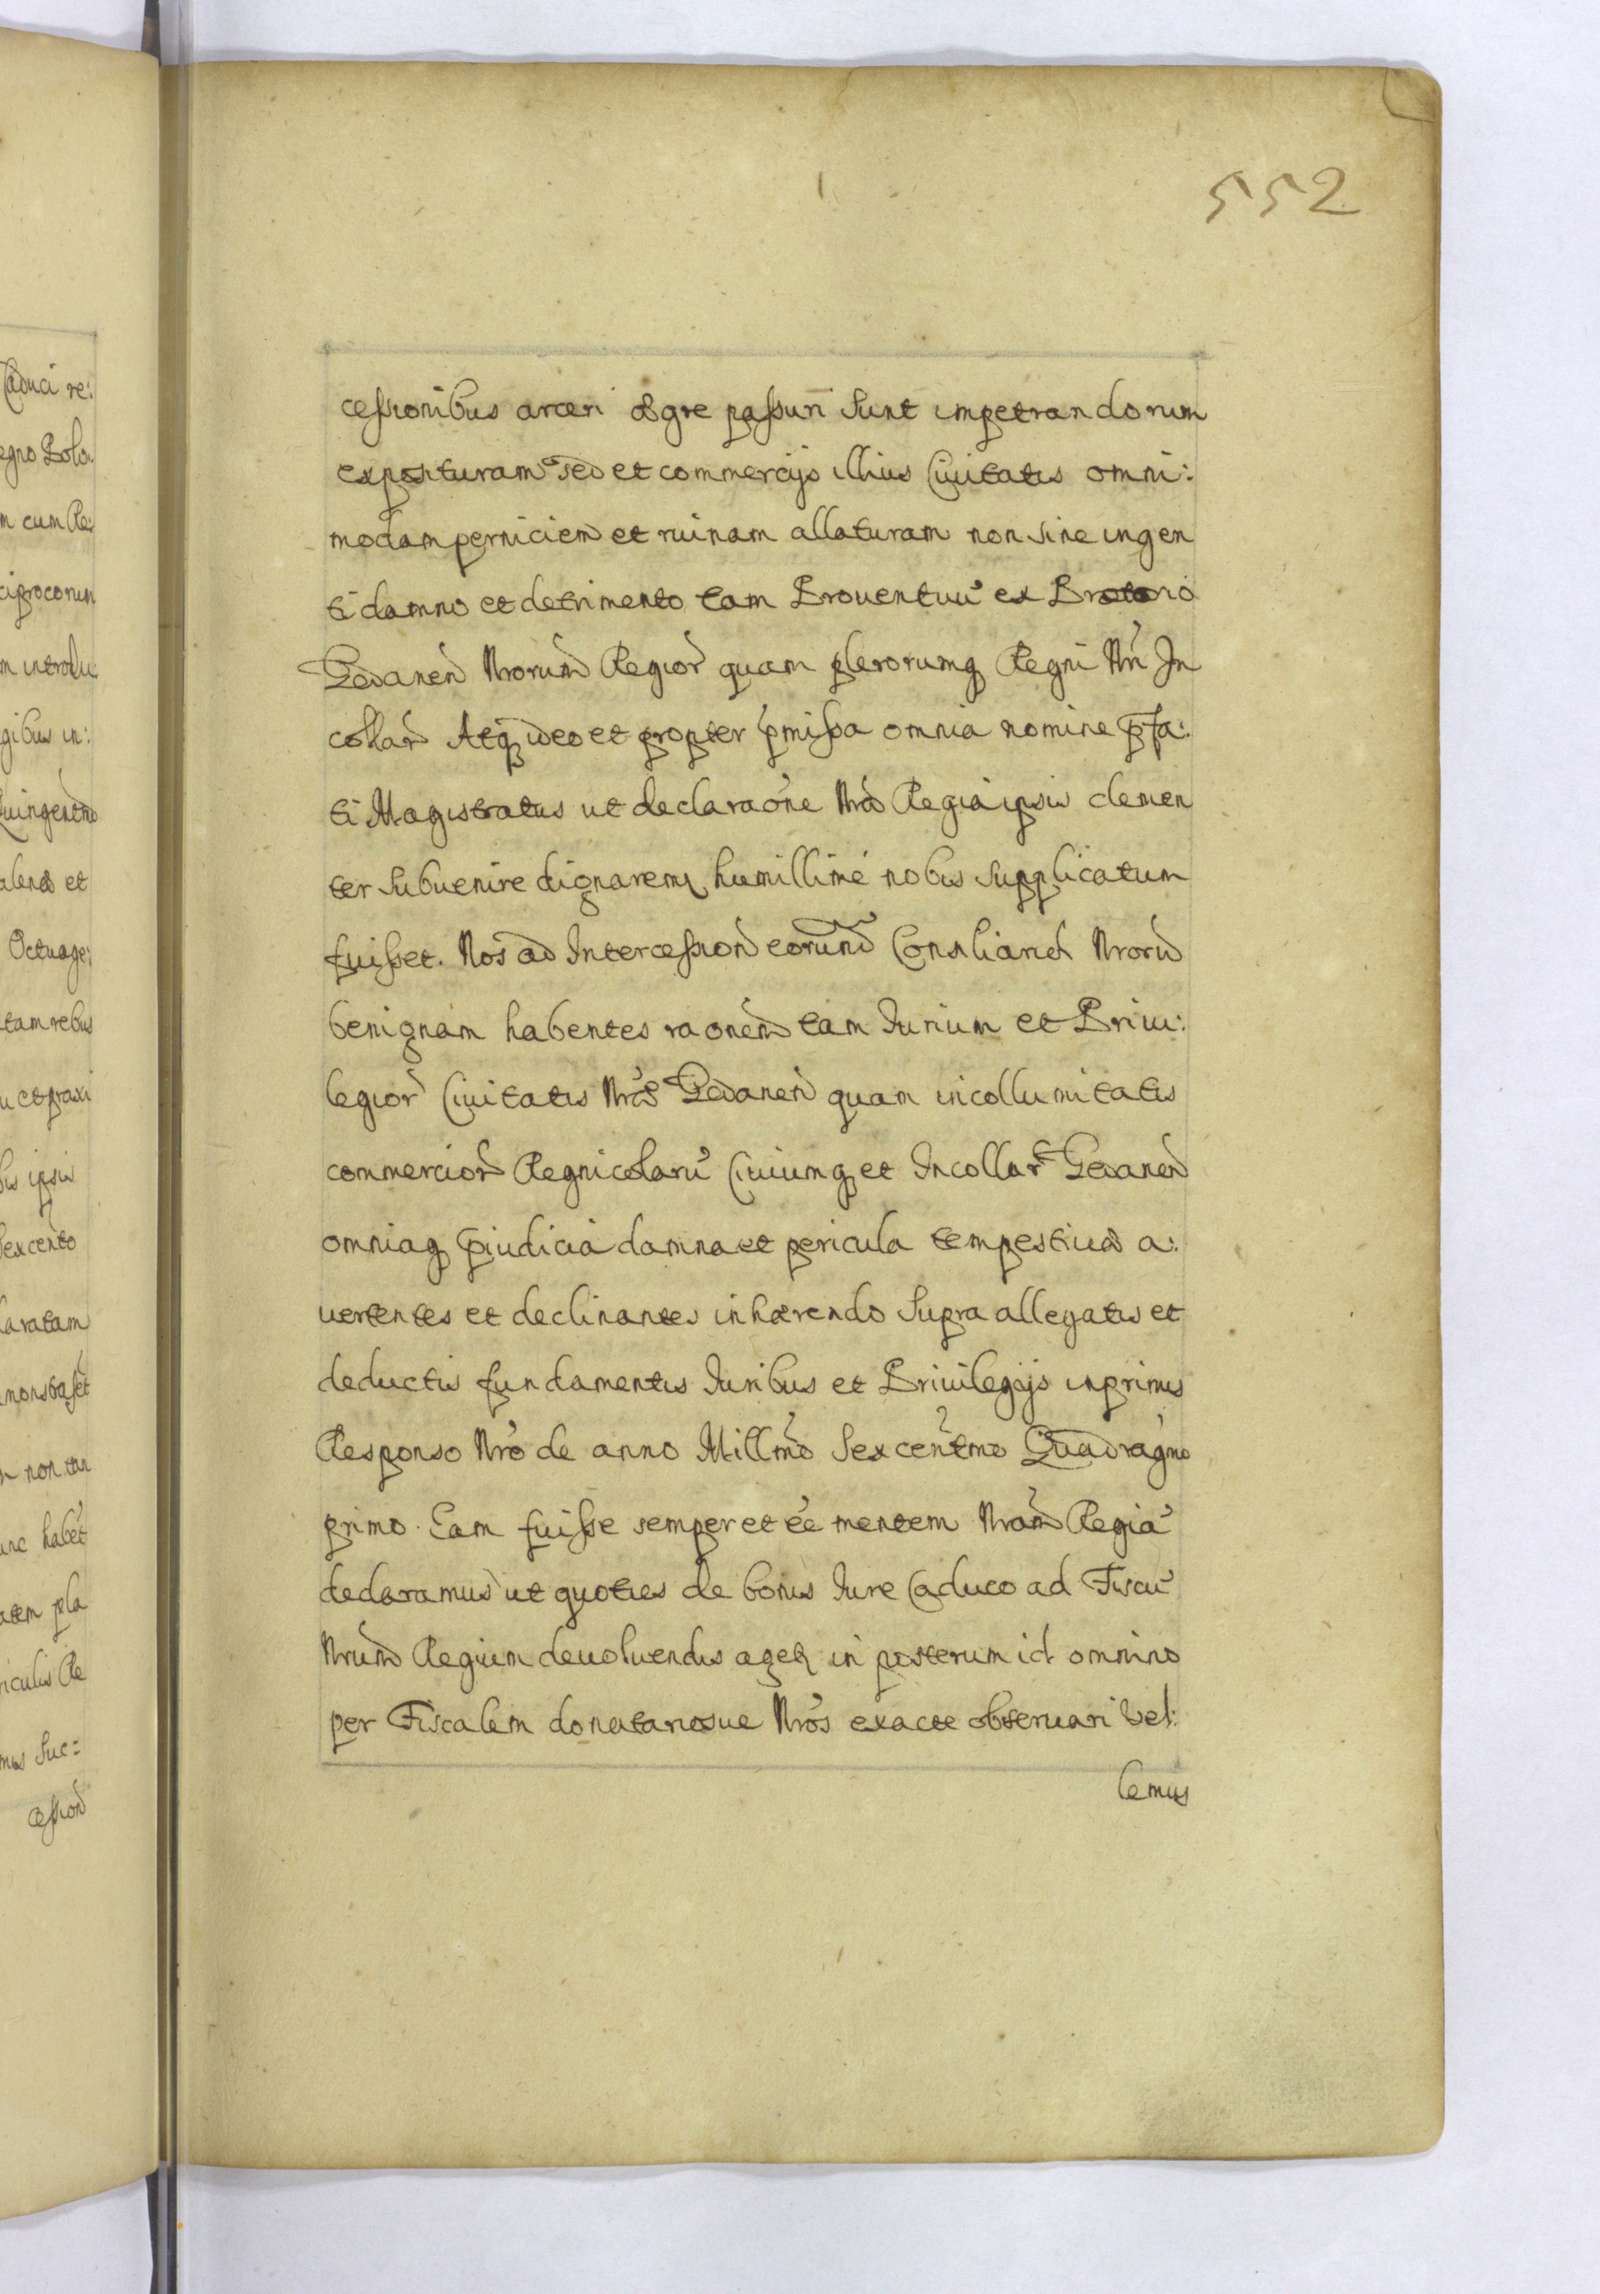 552
cessionibus arceri ægre passuri sunt impetrandorum
exposituram sed et commercijs illius Ciuitatis omni:
modam perniciem et ruinam allaturam non sine ingen
ti damno et detrimento tam Prouentuũ ex Portorio
Gedanen Nrorum Regior quam plerorumq Regni Nri In
collar Atq ideo et propter pmissa omnia nomine pfa:
ti Magistratus ut declaraõne Nra Regia ipsis clemen
ter subuenire dignaremr humillimé nobis supplicatum
fuisset. Nos ad Intercession eorund Consiliarior Nroru
benignam habentes raonem tam Iurium et Priui:
legior Ciuitatis Nræ Gedanen quam incollumitatis
commercior Regnicolarũ Ciuiumq et Incollar Gedanen
omniaq piudicia damna et pericula tempestiua a:
uertentes et declinantes inhærendo supra allegatis et
deductis fundamentis Iuribus et Priuilegijs inprimis
Responso Nro de anno Millmo Sexcentmo Quadragmo
primo. Eam fuisse semper et eẽ mentem Nram Regiã
declaramus ut quoties de bonis Iure Caduco ad Fiscũ
Nrum Regium deuoluendis agetr in posterum id omnino
per Fiscalem donatariosue Nros exacte obseruari vel:
lemus
Caduci re:
egno Polo:
m cum Re:
ciprocorum
m introdu
gibus in:
Quingentmo
alend et
Octuage:
tam rebus
u et praxi
is ipsis
sexcento
laratam
monstasset
non tan
unc habet
atem pla
riculis Re
mus Suc:
cession